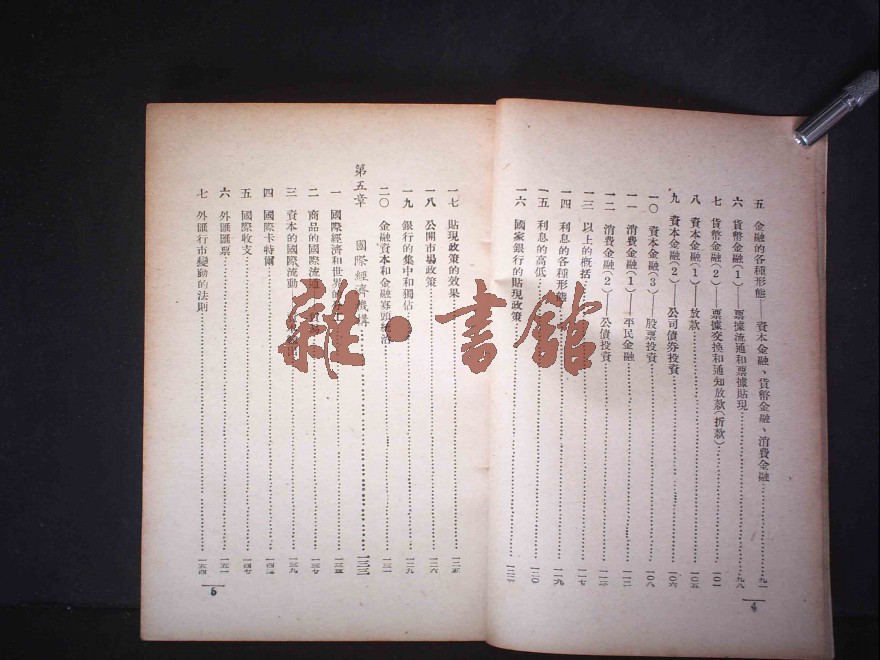 五 金融的各種形態——資本金融、貨幣金融、消費金融………九一
六 貨幣金融(1)——票據流通和票據貼現………九八
七 貨幣金融(2)——票據交換和通知放款(折款)………一〇一
八 資本金融(1)——放款………一〇五
九 資本金融(2)——公司債券投資………一〇六
一〇 資本金融(3)——股票投資………一〇八
一一 消費金融(1)——平民金融………一一二
一二 消費金融(2)——公債投資………
一三 以上的概括………一一七
一四 利息的各種形態………一一九
一五 利息的高低………一二〇
一六 國家銀行的貼現政策………
4
一七 貼現政策的效果………一二五
一八 公開市場政策………一二六
一九 銀行的集中和獨佔………一二九
二〇 金融資本和金融寡頭統治………一三一
第五章 國際經濟機構………一三三
一 國際經濟和世界的………一三五
二 商品的國際流通………一三七
三 資本的國際流動………一三九
四 國際卡特爾………
五 國際收支………一四七
六 外匯匯票………一五一
七 外匯行市變動的法則………一五四
5
雜·書館